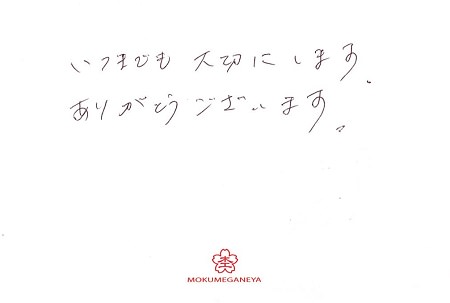 いつまでも 大切にします。
ありがとうございます。
MOKUMEGANEYA